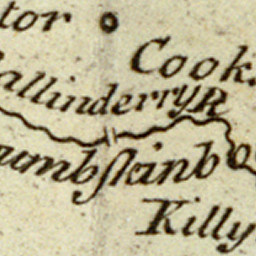 tor
Cook.
allinderry R
umbſkinb
Killy